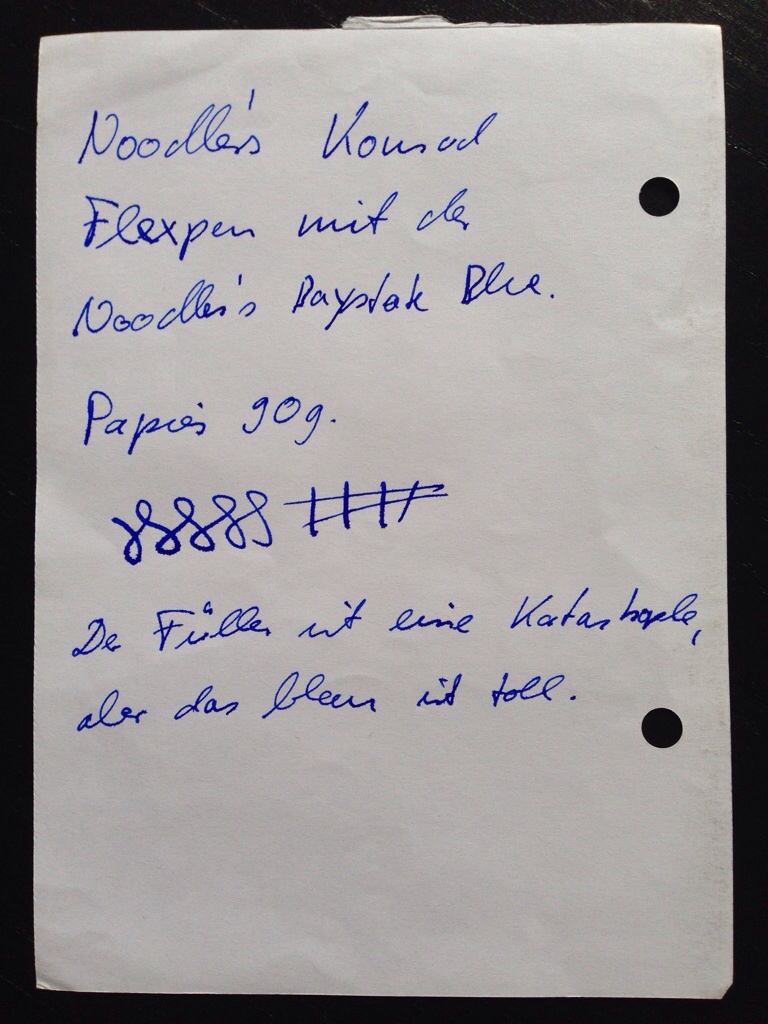 Noodler's Konrad
Flexpen mit der
Noodler's Baystate Blue.
Papier 90g.
Der Füller ist eine Katastrophe,
aber das blau ist toll.